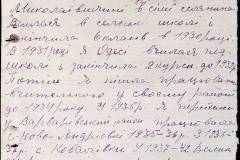 Миколаївщини В сім'ї селянина
Вчилася в сільскі школі і
кінчила 6 класів в 1930 році
В 1931 році в Одесі вчилася
школі і закінчила 2 курси до 1933
Потім я пішла працювати
вчителькою у своєму районі
до 1934 року. У 1935 р. я переїхала
у Варварівський район працювала
с. Ново-Андріївка 1935-36 р. З 1936-
37 р. с. Ковалівка У 1938-42